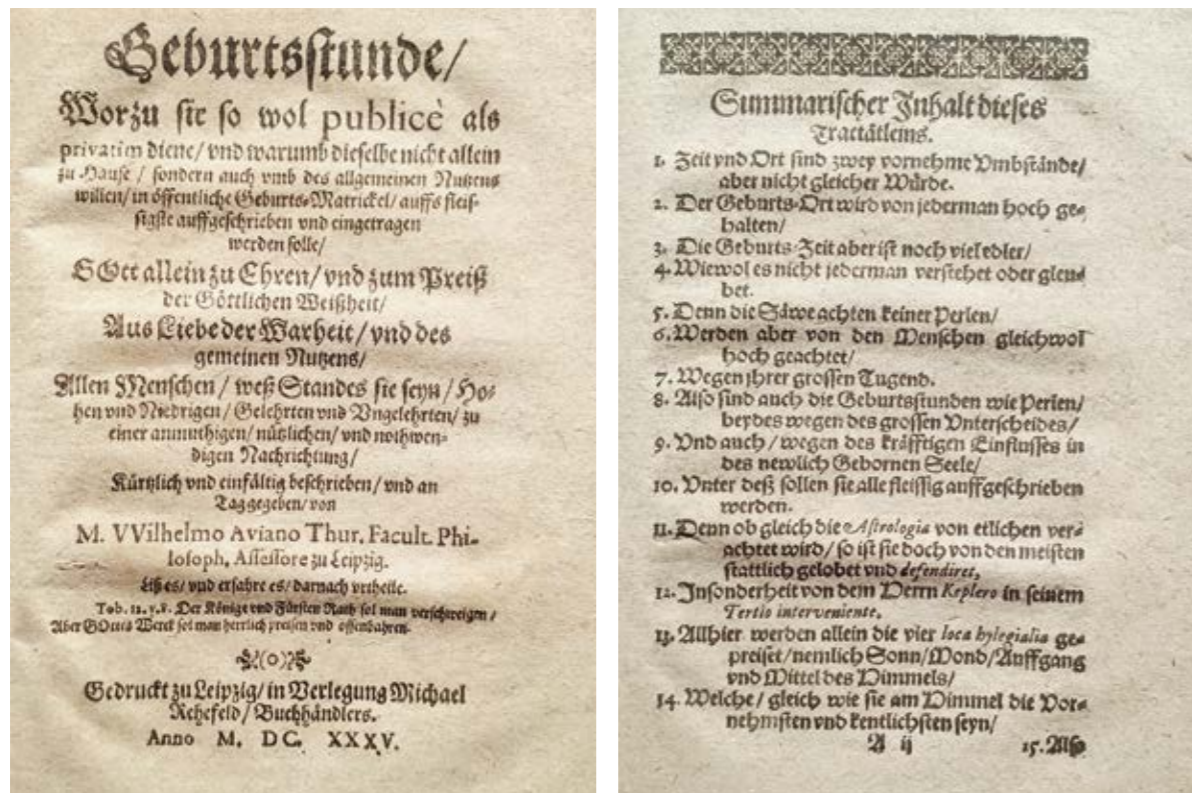 Geburtsstunde/
Worzu sie so wol publicè als
privatim diene/ vnd warumb dieselbe nicht allein
zu Hause / sondern auch vmb des allgemeinen Nutzens
willen/ in öffentliche Geburts-Matrickel/ auffs fleis-
sigste auffgeschrieben vnd eingetragen
werden solle/
GOtt allein zu Ehren/ vnd zum Preiß
der Göttlichen Weißheit/
Aus Liebe der Warheit/ vnd des
gemeinen Nutzens/
Allen Menschen / weß Standes sie seyn/ Ho-
hen vnd Niedrigen/ Gelehrten vnd Vngelehrten/ zu
einer anmuthigen/ nützlichen/ vnd nothwen-
digen Nachrichtung/
Kürtzlich vnd einfältig beschrieben/ vnd an
Tag gegeben/ von
M. VVilhelmo Aviano Thur. Facult. Phi-
losoph. Assessore zu Leipzig.
Liß es/ vnd erfahre es/ darnach vrtheile.
Tob. 12. v. 8. Der Könige vnd Fürsten Rath sol man verschweigen /
Aber GOttes Werck sol man herrlich preisen vnd offenbahren.
(o)
Gedruckt zu Leipzig/ in Verlegung Michael
Rehefeld/ Buchhändlers.
Anno M. DC. XXXV.
Summarischer Inhalt dieses
Tractätleins.
1. Zeit vnd Ort sind zwey vornehme Vmbstände/
aber nicht gleicher Würde.
2. Der Geburts-Ort wird von jederman hoch ge-
halten/
3. Die Geburts-Zeit aber ist noch viel edler/
4. Wiewol es nicht jederman verstehet oder gleu-
bet.
5. Denn die Säwe achten keiner Perlen/
6. Werden aber von den Menschen gleichwol
hoch geachtet/
7. Wegen jhrer grossen Tugend.
8. Also sind auch die Geburtsstunden wie Perlen/
beydes wegen des grossen Vnterscheides/
9. Vnd auch / wegen des kräfftigen Einflusses in
des newlich Gebornen Seele/
10. Vnter deß sollen sie alle fleissig auffgeschrieben
werden.
11. Denn ob gleich die Astrologia von etlichen ver-
achtet wird/ so ist sie doch von den meisten
stattlich gelobet vnd defendiret,
12. Insonderheit von dem Herrn Keplero in seinem
Tertio interveniente.
13. Allhier werden allein die vier loca hylegialia ge-
preiset/ nemlich Sonn/ Mond/ Auffgang
vnd Mittel des Himmels/
14. Welche/ gleich wie sie am Himmel die Vor-
nehmsten vnd kentlichsten seyn/
A ij 15. Also